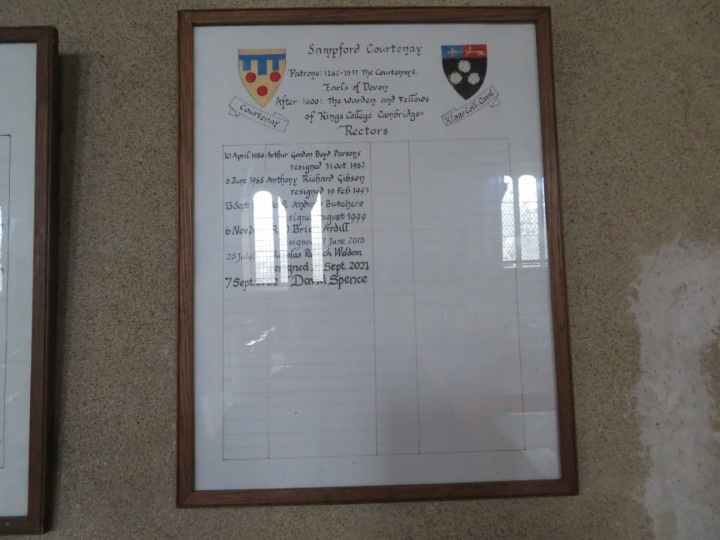 Sampford Courtenay
Patrons: 1262-1537 The Courtenays.
Earls of Devon
After 1609: The Warden and Fellows
of Kings College Cambridge
Courtenay
Kings Coll. Camb
Rectors
10 April 1980 Arthur Gordon Boyd Parsons
resigned 31 Oct 1987
6 June 1988 Anthony Richard Gibson
resigned 19 Feb 1993
13 Sept Butchers
August 1999
6 Nov Brian Ardill
June 2010
25 July Weldon
Sept. 2021
7 Sept. David Spence